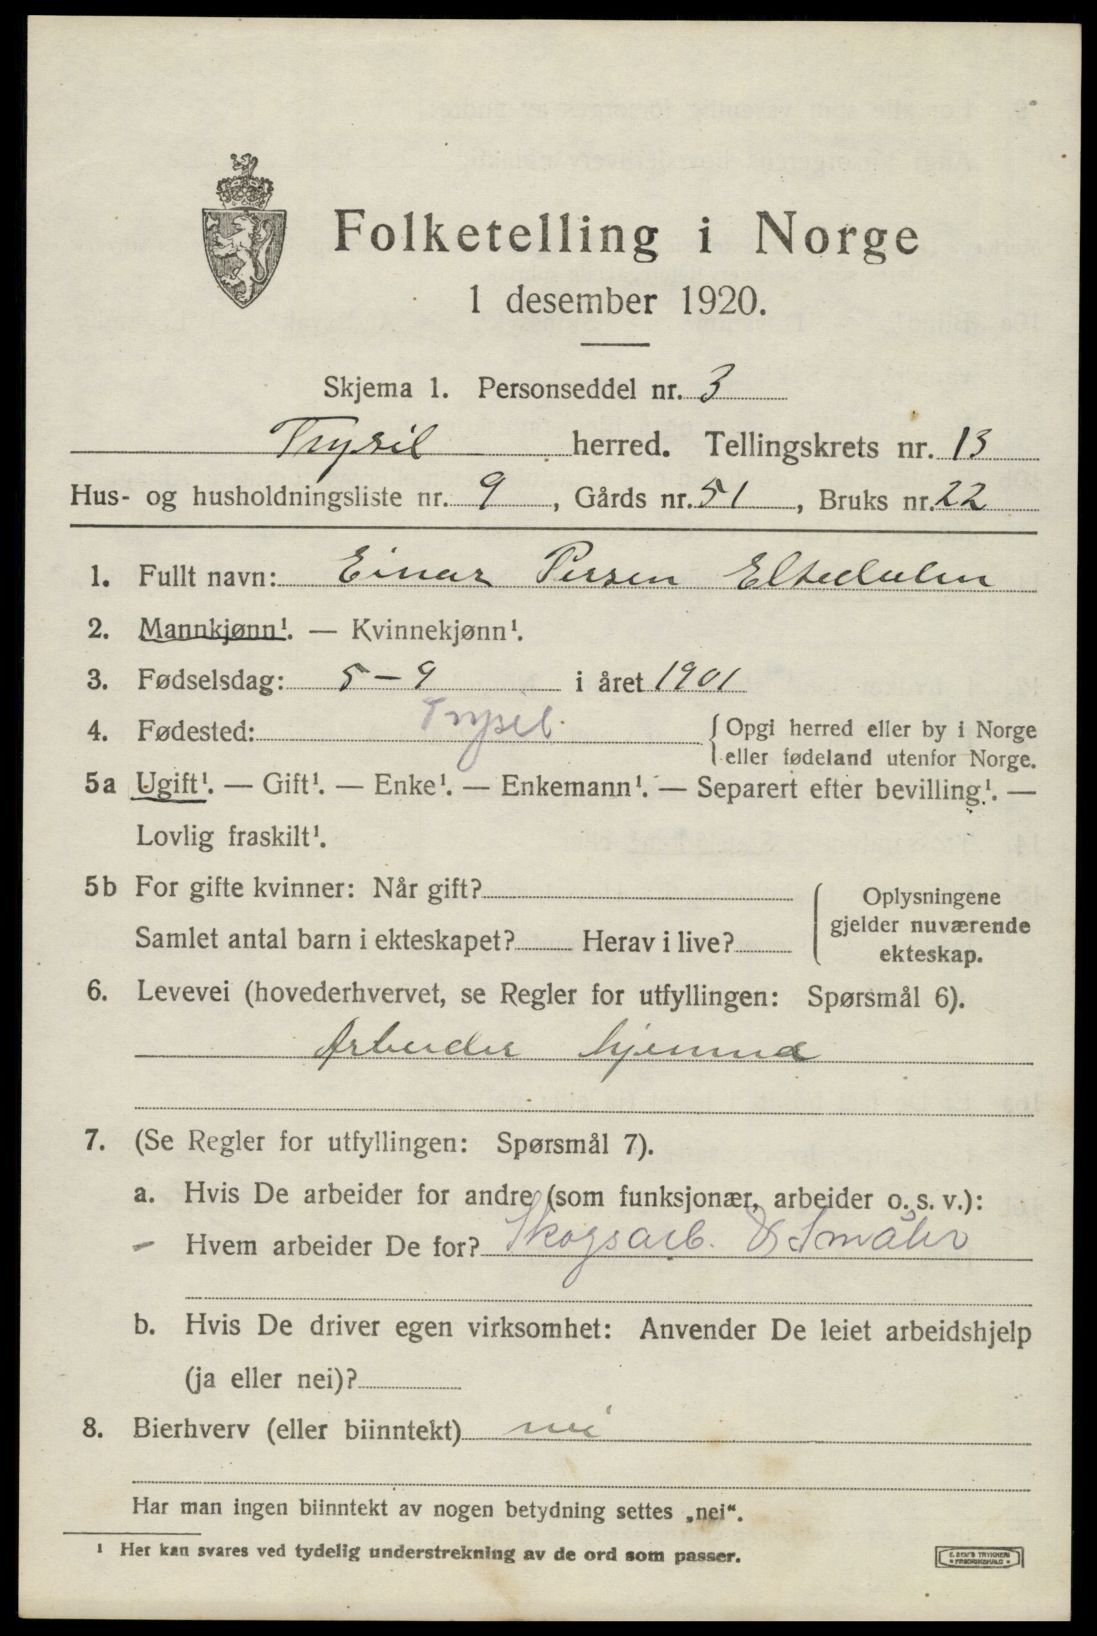 Folketelling i Norge
1 desember 1920.
Skjema 1. Personseddel nr. 3
Trysil herred. Tellingskrets nr. 13
Hus- og husholdningsliste nr. 9, Gårds nr. 51, Bruks nr. 22
1. Fullt navn: Einar Persen
2. Mannkjønn¹. — Kvinnekjønn¹.
3. Fødselsdag: 5-9 i året 1901
4. Fødested: Trysil. { Opgi herred eller by i Norge
eller fødeland utenfor Norge.
5a Ugift¹. — Gift¹. — Enke¹. — Enkemann¹. — Separert efter bevilling¹. —
Lovlig fraskilt¹.
5b For gifte kvinner: Når gift?
Samlet antal barn i ekteskapet? Herav i live?
{ Oplysningene
gjelder nuværende
ekteskap.
6. Levevei (hovederhvervet, se Regler for utfyllingen: Spørsmål 6).
Arbeider hjemme
7. (Se Regler for utfyllingen: Spørsmål 7).
a. Hvis De arbeider for andre (som funksjonær, arbeider o. s. v.):
— Hvem arbeider De for? Skogsarb.
b. Hvis De driver egen virksomhet: Anvender De leiet arbeidshjelp
(ja eller nei)?
8. Bierhverv (eller biinntekt) nei
Har man ingen biinntekt av nogen betydning settes „nei“.
¹ Her kan svares ved tydelig understrekning av de ord som passer.